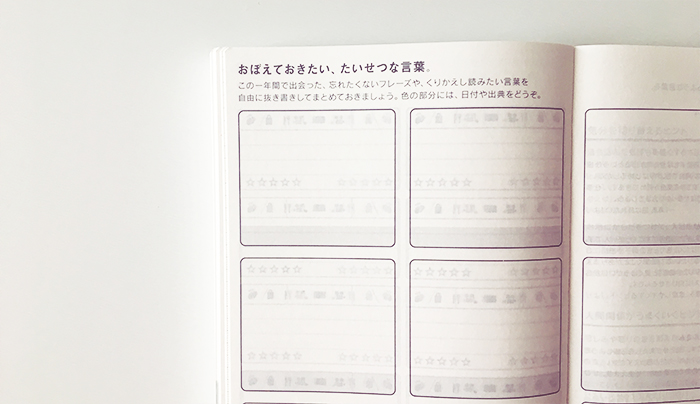 おぼえておきたい、たいせつな言葉。
この一年間で出会った、忘れたくないフレーズや、くりかえし読みたい言葉を
自由に抜き書きしてまとめておきましょう。色の部分には、日付や出典をどうぞ。